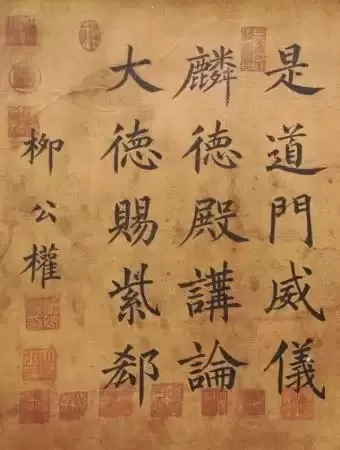 是道門威儀
麟德殿講論
大德賜紫郄
柳公權